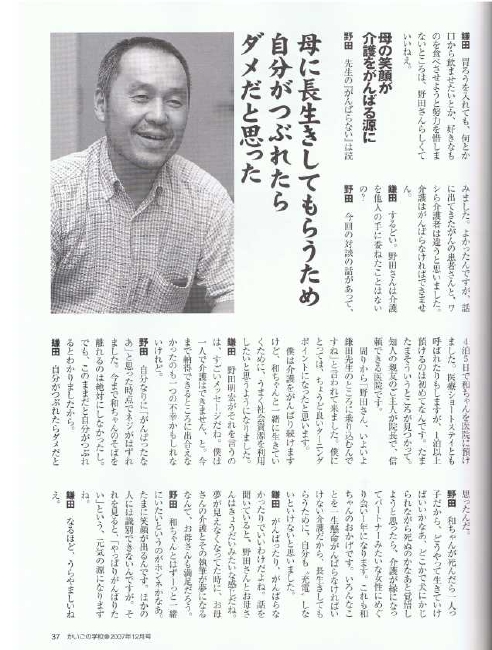 鎌田　胃ろうを入れても、何とか
口から飲ませたいとか、好きなも
のを食べさせようと努力を惜しま
ないところは、野田さんらしくて
いいねえ。
母の笑顔が
介護をがんばる源に
野田　先生の『がんばらない』は読
母に長生きしてもらうため
自分がつぶれたら
ダメだと思った
みました。よかったんですが、話
に出てきたがんの患者さんと、ワ
シら介護者は違うと思いました。
介護はがんばらなければできませ
ん。
鎌田　するどい。野田さんは介護
を他人の手に委ねたことはない
の？
野田　今回の対談の話があって、
4泊5日で和ちゃんを医院に預け
ました。医療ショートステイとも
呼ばれたりもしますが、1泊以上
預けるのは初めてなんです。たま
たまそういうところが見つかって。
知人の親友のご主人が院長で、信
頼できる医院です。
周りから「野田さん、いよいよ
鎌田先生のところに乗り込むんで
すね」と言われて来ました。僕に
とっては、ちょうど良いターニング
ポイントになったと思います。
僕は介護をがんばり続けます
けど、和ちゃんと一緒に生きてい
くために、うまく社会資源を利用
したいと思うようになりました。
鎌田　野田明宏がそれを言うの
は、すごいメッセージだね。僕は
一人で介護はできません、と。今
まで納得できるところに出合えな
かったのも一つの不幸かもしれな
いけれど。
野田　自分なりに「がんばったな
あ」と思った時点でネジがはずれ
ました。今まで和ちゃんのそばを
離れるのは絶対にしなかったし。
でも、このままだと自分がつぶれ
るとわかりましたから。
鎌田　自分がつぶれたらダメだと
思ったんだ。
野田　和ちゃんが死んだら一人っ
子だから、どうやって生きていけ
ばいいかなあ、どこかで犬にかじ
られながら死ぬのかなあと覚悟し
ようと思ったら、介護が縁になっ
てパートナーみたいな女性にめぐ
り会い1年になります。これも和
ちゃんのおかげです。いろんなこ
とを一生懸命がんばらなければい
けない介護だから、長生きしても
らうために、自分も“充電”しな
いといけないと思いました。
鎌田　がんばったり、がんばらな
かったりでいいわけだよね。話を
聞いていると、野田さんとお母さ
んはきょうだいみたいな感じだね。
夢が見えなくなってた時に、お母
さんの介護とその執筆が夢になる
なんて、お母さんも満足だろう。
野田　和ちゃんとはずーっと一緒
にいたいというのがホンネかなあ。
たまに笑顔が出るんです。ほかの
人には識別できないんですが、そ
れを見ると、「やっぱりがんばりた
い」という、元気の源になります
ね。
鎌田　なるほど、うらやましいね
37　かいごの学校　2007年12月号